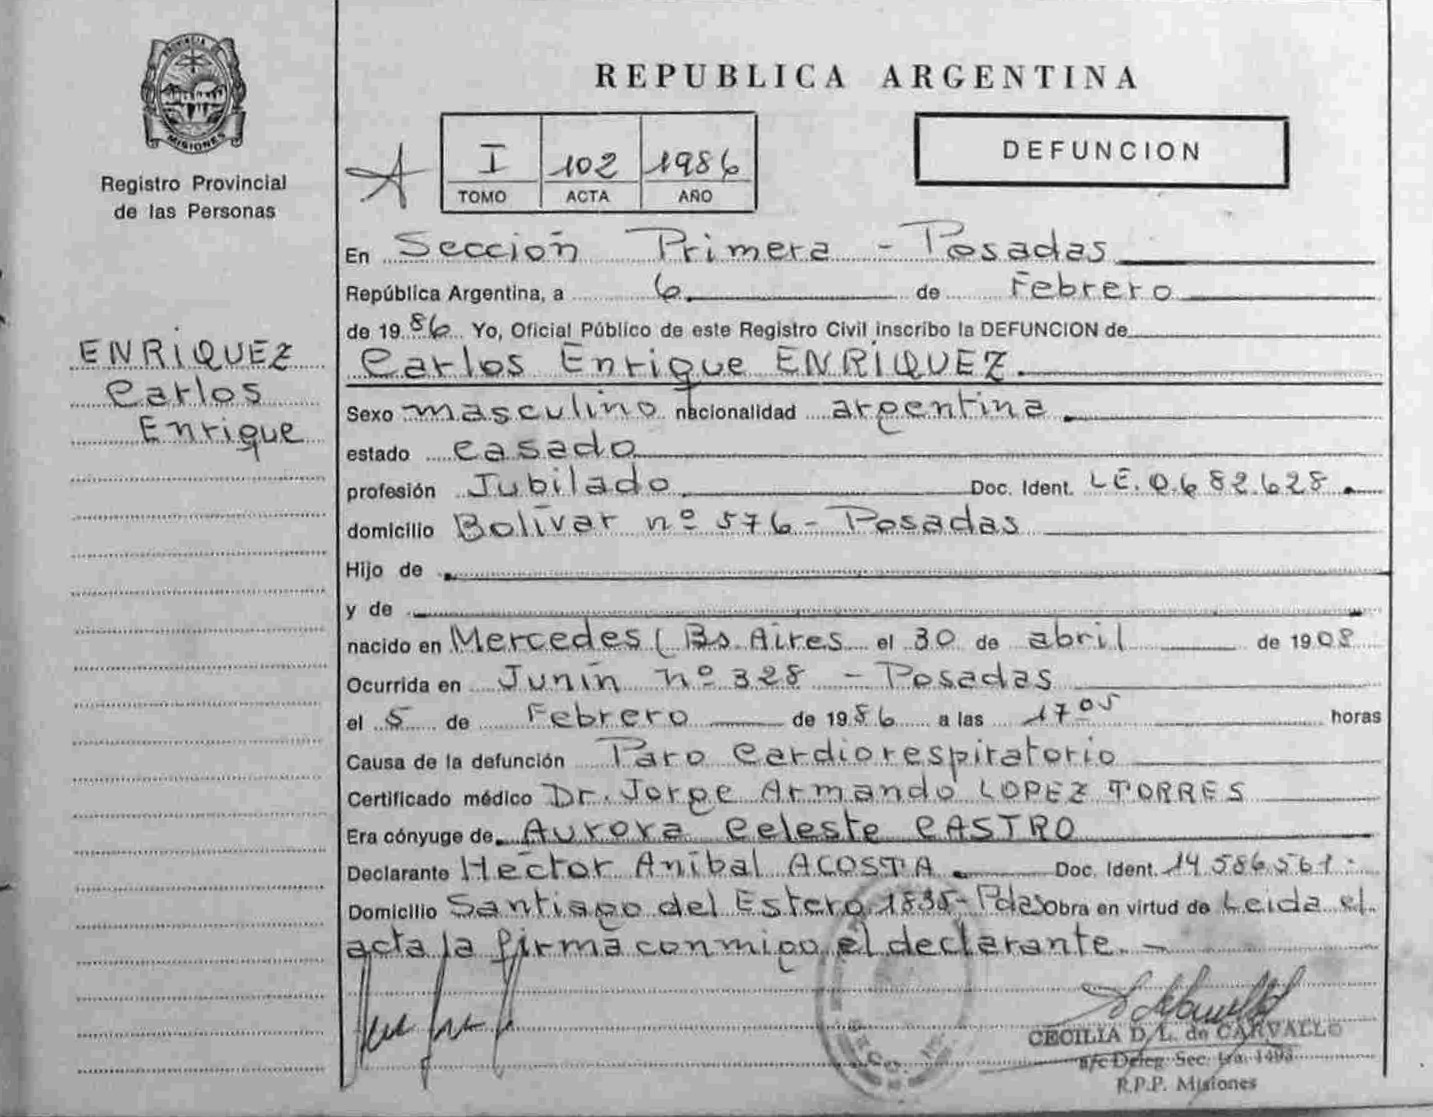 PROVINCIA DE
MISIONES
Registro Provincial
de las Personas
ENRIQUEZ
Carlos
Enrique
REPUBLICA ARGENTINA
A
I 102 1986
TOMO ACTA AÑO
DEFUNCION
En Sección Primera - Posadas
República Argentina, a 6 de Febrero
de 1986 Yo, Oficial Público de este Registro Civil inscribo la DEFUNCION de
Carlos Enrique ENRIQUEZ
Sexo masculino nacionalidad argentina
estado casado
profesión Jubilado Doc. Ident. LE.0.682.628
domicilio Bolívar nº 576 - Posadas
Hijo de
y de
nacido en Mercedes (Bs. Aires el 30 de abril de 1908
Ocurrida en Junín nº 328 - Posadas
el 5 de Febrero de 1986 a las 17 05 horas
Causa de la defunción Paro Cardiorespiratorio
Certificado médico Dr. Jorge Armando LOPEZ TORRES
Era cónyuge de Aurora Celeste CASTRO
Declarante Héctor Aníbal ACOSTA Doc. Ident. 14.586.561
Domicilio Santiago del Estero 1835 - Pdas Obra en virtud de Leida el
acta la firma conmigo el declarante. -
CECILIA D. L. de CARVALLO
a/c Deleg. Sec. 1ra. 1493
R.P.P. Misiones